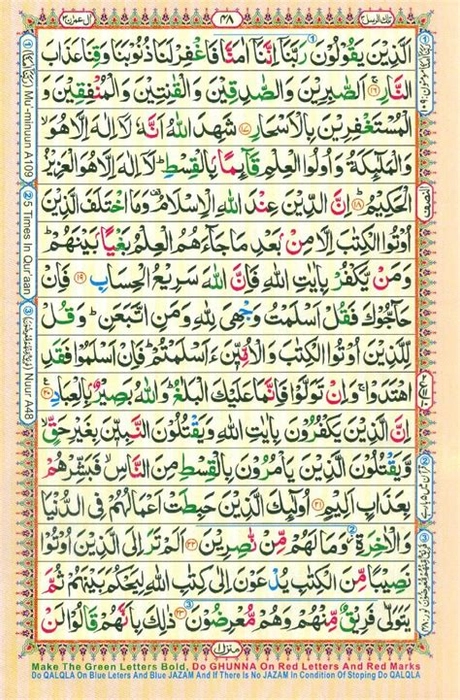 تلك الرسل ٣
٤٨
ال عمران ٣
الَّذِيْنَ يَقُوْلُوْنَ رَبَّنَآ اِنَّنَآ اٰمَنَّا فَاغْفِرْ لَنَا ذُنُوْبَنَا وَقِنَا عَذَابَ
النَّارِ ۚ‏﴿۱۶﴾ اَلصّٰبِرِيْنَ وَالصّٰدِقِيْنَ وَالْقٰنِتِيْنَ وَالْمُنْفِقِيْنَ وَ
الْمُسْتَغْفِرِيْنَ بِالْاَسْحَارِ ﴿۱۷﴾ شَهِدَ اللّٰهُ اَنَّهٗ لَآ اِلٰهَ اِلَّا هُوَ ۙ
وَالْمَلٰٓئِكَةُ وَاُولُوا الْعِلْمِ قَآئِمًاۢ بِالْقِسْطِ ؕ لَآ اِلٰهَ اِلَّا هُوَ الْعَزِيْزُ
الْحَكِيْمُ ؕ﴿۱۸﴾ اِنَّ الدِّيْنَ عِنْدَ اللّٰهِ الْاِسْلَامُ ۟ وَمَا اخْتَلَفَ الَّذِيْنَ
اُوْتُوا الْكِتٰبَ اِلَّا مِنْۢ بَعْدِ مَا جَآءَهُمُ الْعِلْمُ بَغْيًاۢ بَيْنَهُمْ ؕ
وَمَنْ يَّكْفُرْ بِاٰيٰتِ اللّٰهِ فَاِنَّ اللّٰهَ سَرِيْعُ الْحِسَابِ ﴿۱۹﴾ فَاِنْ
حَآجُّوْكَ فَقُلْ اَسْلَمْتُ وَجْهِيَ لِلّٰهِ وَمَنِ اتَّبَعَنِ ؕ وَقُلْ
لِّلَّذِيْنَ اُوْتُوا الْكِتٰبَ وَالْاُمِّيّٖنَ ءَاَسْلَمْتُمْ ؕ فَاِنْ اَسْلَمُوْا فَقَدِ
اهْتَدَوْا ۚ وَاِنْ تَوَلَّوْا فَاِنَّمَا عَلَيْكَ الْبَلٰغُ ؕ وَاللّٰهُ بَصِيْرٌۢ بِالْعِبَادِ ﴿۲۰﴾
اِنَّ الَّذِيْنَ يَكْفُرُوْنَ بِاٰيٰتِ اللّٰهِ وَيَقْتُلُوْنَ النَّبِيّٖنَ بِغَيْرِ حَقٍّ ۙ
وَّيَقْتُلُوْنَ الَّذِيْنَ يَاْمُرُوْنَ بِالْقِسْطِ مِنَ النَّاسِ ۙ فَبَشِّرْهُمْ
بِعَذَابٍ اَلِيْمٍ ﴿۲۱﴾ اُولٰٓئِكَ الَّذِيْنَ حَبِطَتْ اَعْمَالُهُمْ فِي الدُّنْيَا
وَالْاٰخِرَةِ ۫ وَمَا لَهُمْ مِّنْ نّٰصِرِيْنَ ﴿۲۲﴾ اَلَمْ تَرَ اِلَى الَّذِيْنَ اُوْتُوْا
نَصِيْبًا مِّنَ الْكِتٰبِ يُدْعَوْنَ اِلٰى كِتٰبِ اللّٰهِ لِيَحْكُمَ بَيْنَهُمْ ثُمَّ
يَتَوَلّٰى فَرِيْقٌ مِّنْهُمْ وَهُمْ مُّعْرِضُوْنَ ﴿۲۳﴾ ذٰلِكَ بِاَنَّهُمْ قَالُوْا لَنْ
منزل ۱
Mu'-minuun A109
② 5 Times In Qur'aan
Nuur A48
النصف
Make The Green Letters Bold, Do GHUNNA On Red Letters And Red Marks
Do QALQLA On Blue Leters And Blue JAZAM And If There Is No JAZAM In Condition Of Stoping Do QALQLA